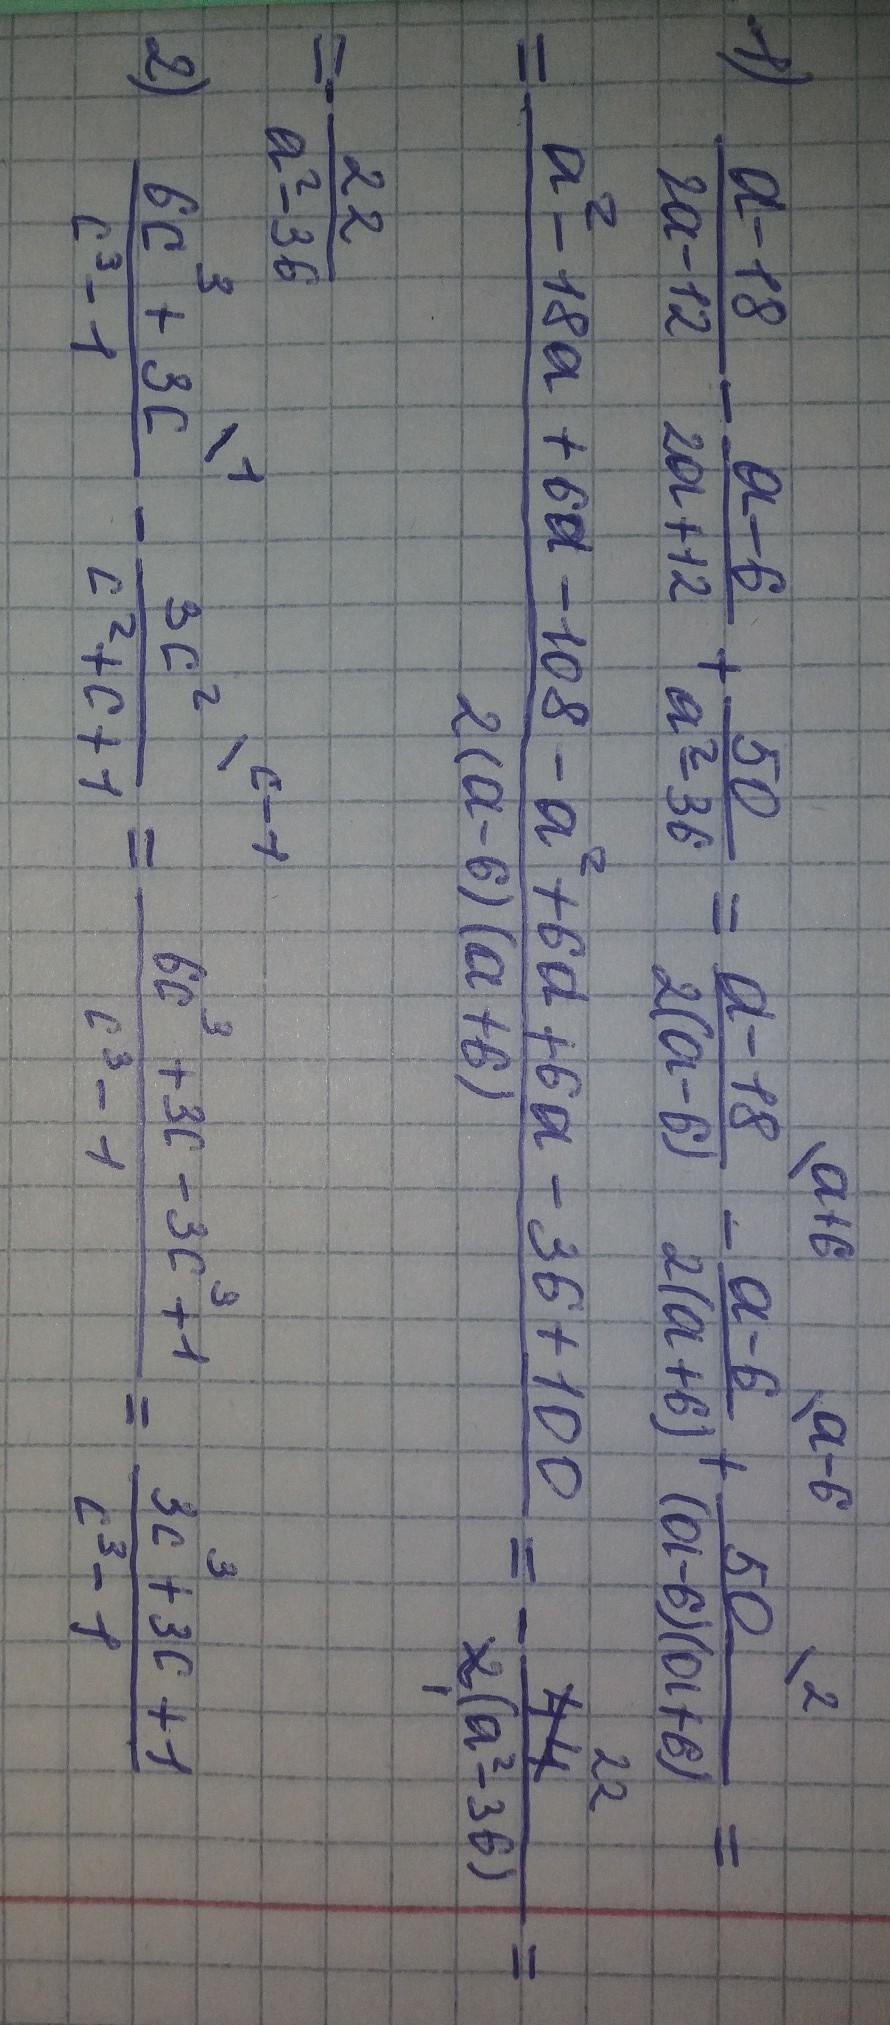 1) \frac{a-18}{2a-12} - \frac{a-6}{2a+12} + \frac{50}{a^2-36} = \frac{a-18}{2(a-6)}^{\backslash a+6} - \frac{a-6}{2(a+6)}^{\backslash a-6} + \frac{50}{(a-6)(a+6)}^{\backslash 2} =
= \frac{a^2-18a+6a-108-a^2+6a+6a-36+100}{2(a-6)(a+6)} = - \frac{44 22}{2 1(a^2-36)} =
= - \frac{22}{a^2-36}
2) \frac{6c^3+3c}{c^3-1}^{\backslash 1} - \frac{3c^2}{c^2+c+1}^{\backslash c-1} = \frac{6c^3+3c-3c^3+1}{c^3-1} = \frac{3c^3+3c+1}{c^3-1}